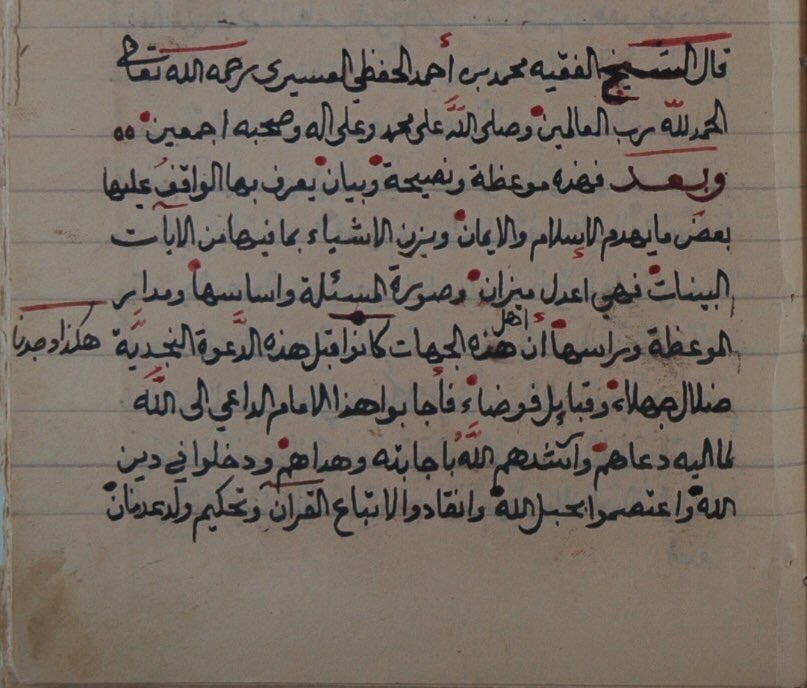 قال الشيخ الفقيه محمد بن أحمد الحفظي العسيري رحمه الله تعالى
الحمد لله رب العالمين وصلى الله على محمد وعلى اله وصحبه اجمعين
وبعد فهذه موعظة ونصيحة وبيان يعرف بها الواقف عليها
بعض ما يهدم الإسلام والايمان ويزن الاشياء بما فيها من الآيات
البينات فهي اعدل ميزان وصورة المسئلة واساسها ومدار
الموعظة وراسها أن أهل هذه الجهات كانوا قبل هذه الدعوة النجدية
هكذا وجدنا
ضلال جهلاء وقبايل فوضاء فأجابوا هذا الامام الداعي الى الله
لما اليه دعاهم وأرشدهم الله باجابته وهداهم ودخلوا في دين
الله واعتصموا بحبل الله وانقادوا لاتباع القرآن وتحكيم ولد عدنان